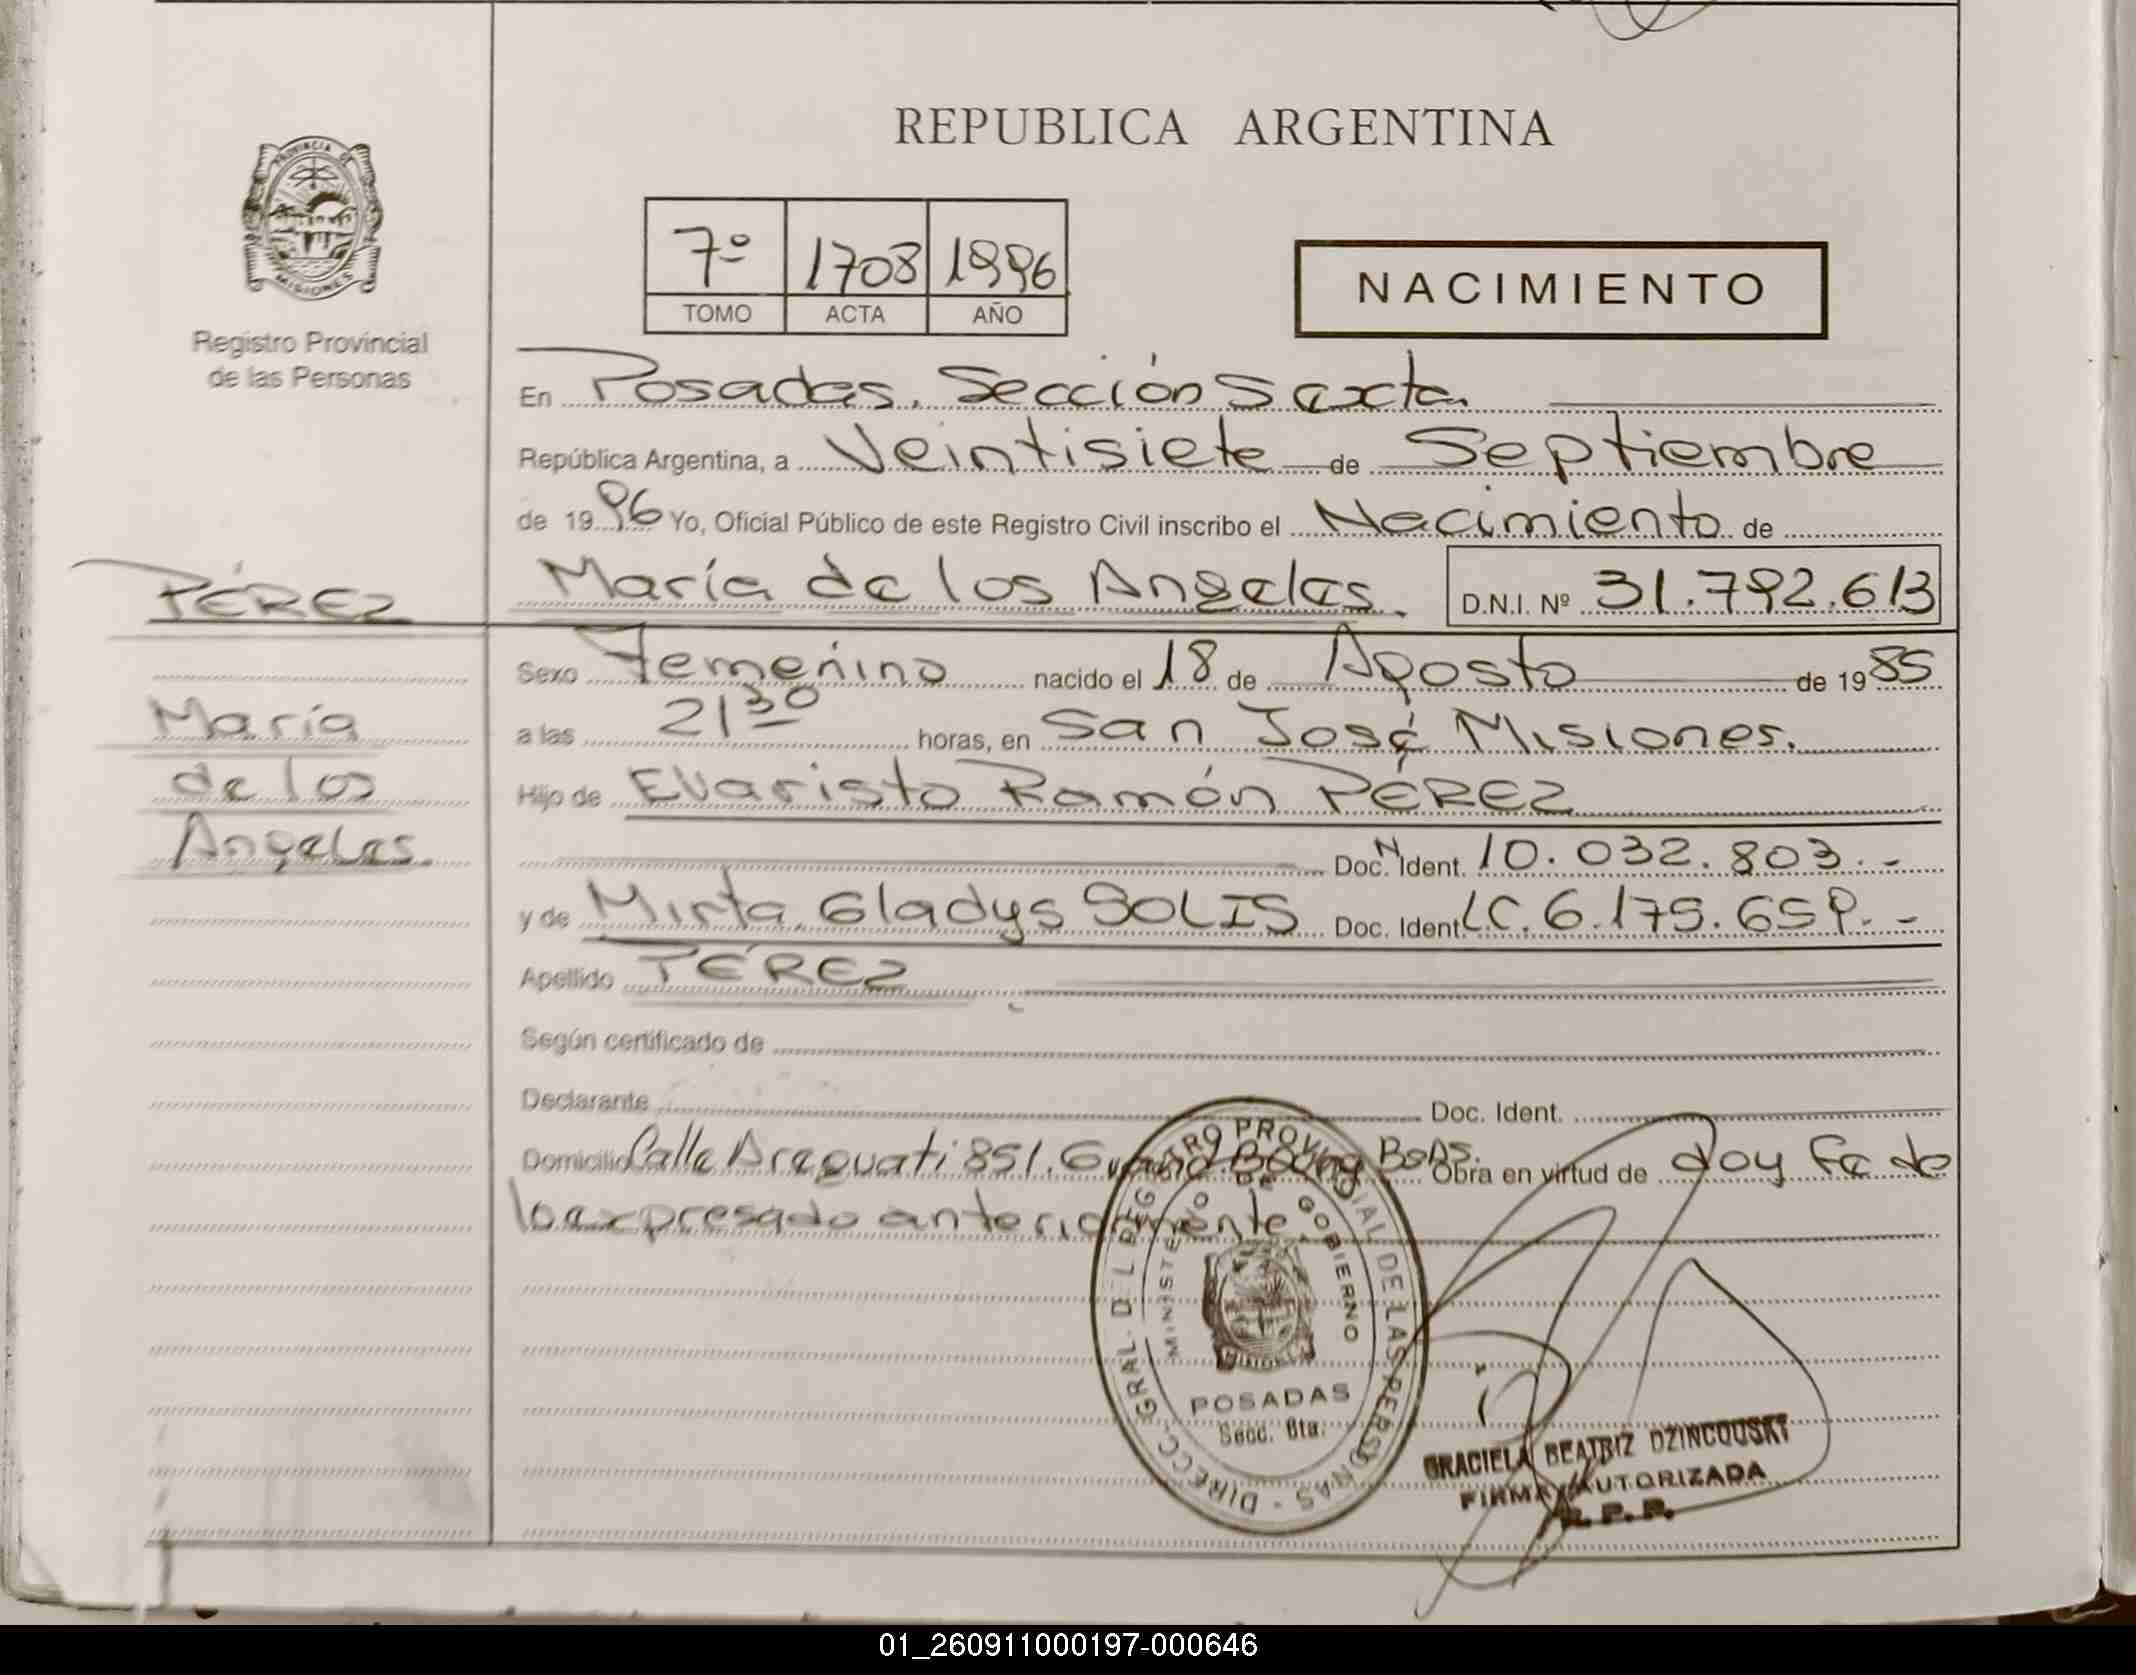 REPUBLICA ARGENTINA
PROVINCIA DE
MISIONES
Registro Provincial
de las Personas
7º 1708 1996
TOMO ACTA AÑO
NACIMIENTO
En Posadas, Sección Sexta.
República Argentina, a Veintisiete de Septiembre
de 1996 Yo, Oficial Público de este Registro Civil inscribo el Nacimiento de
PÉREZ
María de los Angeles. D.N.I. Nº 31.792.613
Sexo Femenino nacido el 18 de Agosto de 1985
María
de los
Angeles.
a las 21 30 horas, en San José Misiones.
Hijo de Evaristo Ramón PÉREZ
Doc. N Ident. 10.032.803.-
y de Mirta Gladys SOLIS Doc. Ident. LC. 6.175.659.-
Apellido PÉREZ
Según certificado de
Declarante Doc. Ident.
Domicilio Calle 851. Obra en virtud de doy fe de
lo expresado anteriormente
DIRECC. GRAL. DEL REGISTRO PROVINCIAL DE LAS PERSONAS
MINISTERIO DE GOBIERNO
POSADAS
Secc. 6ta.
GRACIELA BEATRIZ DZINCOUSKI
FIRMA AUTORIZADA
R. P. P.
01_260911000197-000646